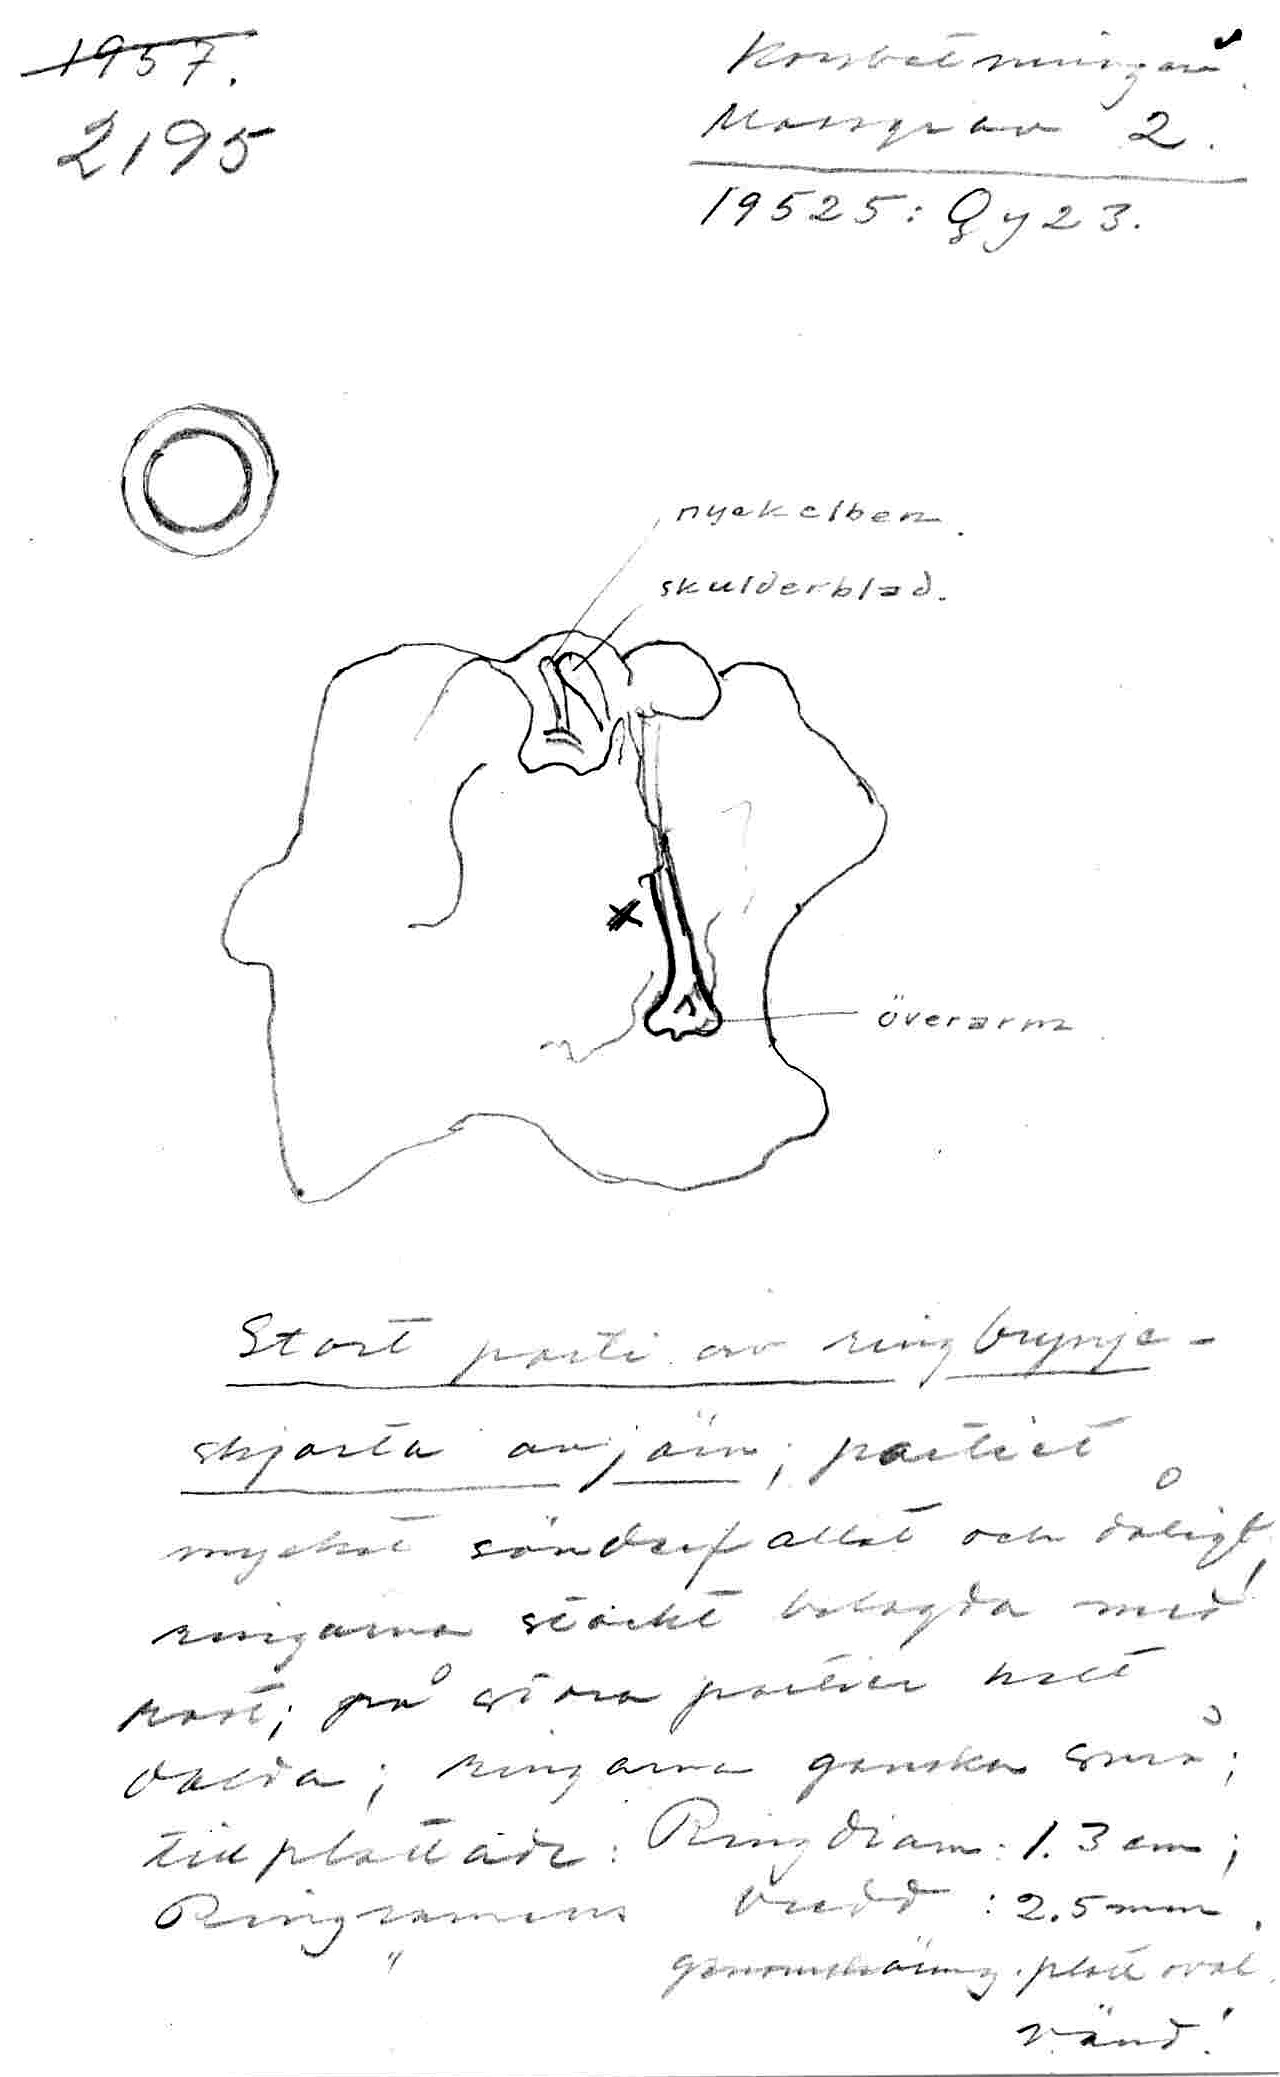 1957.
2195
Korsbetningen.
Massgrav 2.
19525: Gy 23.
nyckelben.
skulderblad.
x
överarm
Stort parti av ringbrynje-
skjorta av järn; partiet
mycket sönderfallet och dåligt,
ringarna starkt belagda med
rost; på stora partier helt
dolda; ringarna ganska små;
tillplattade: Ringdiam: 1.3 cm;
Ringramens bredd: 2.5 mm.
" genomskärning. platt oval.
vänd!